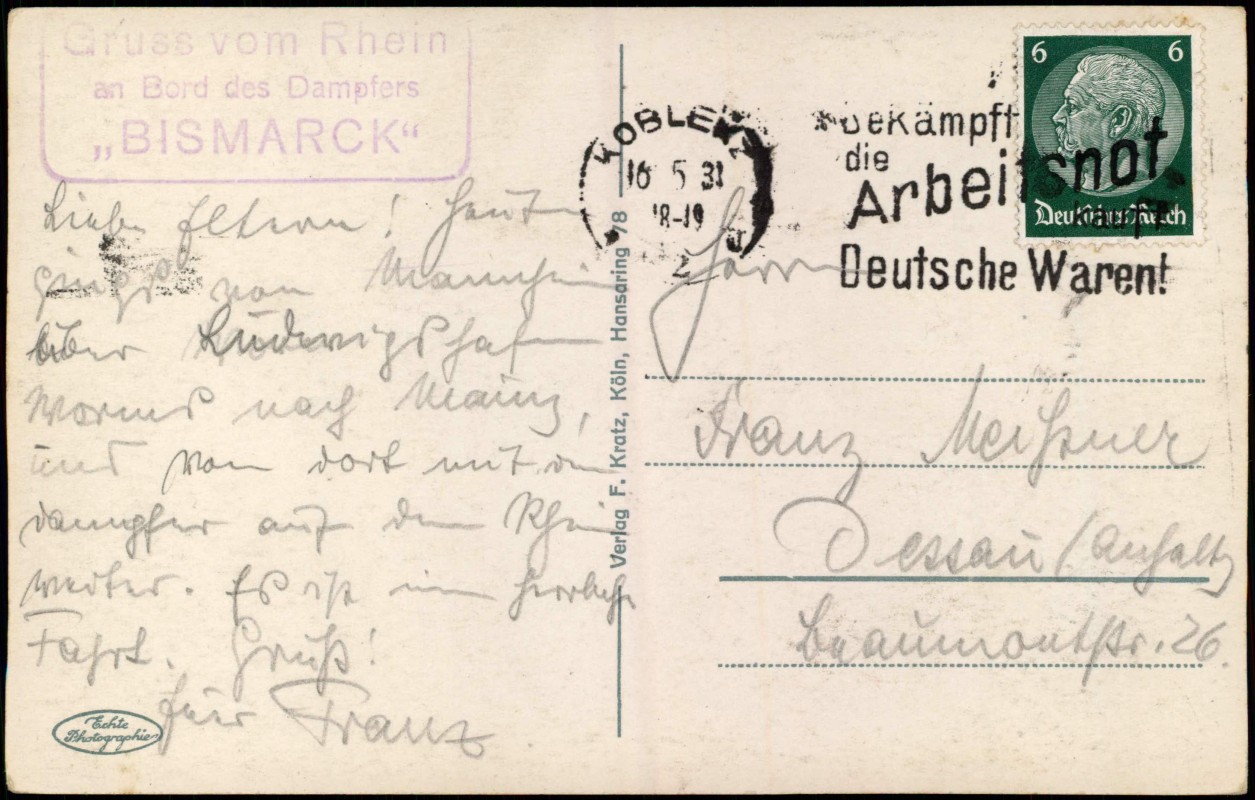 Gruss vom Rhein
an Bord des Dampfers
„BISMARCK“
Liebe Eltern! Heut
ging's von Mannheim
über Ludwigshafen
Worms nach Mainz,
und von dort mit dem
Dampfer auf dem Rhein
weiter. Es ist eine herrliche
Fahrt. Gruß!
Franz
Echte
Photographie
Verlag F. Kratz, Köln, Hansaring 78
KOBLENZ
16 5 31
18-19
2
Bekämpft
die
Arbeitsnot
kauft
Deutsche Waren!
6 6
Deutsches Reich
Herrn
Franz Meißner
Dessau (Anhalt)
Beaumontstr. 26.